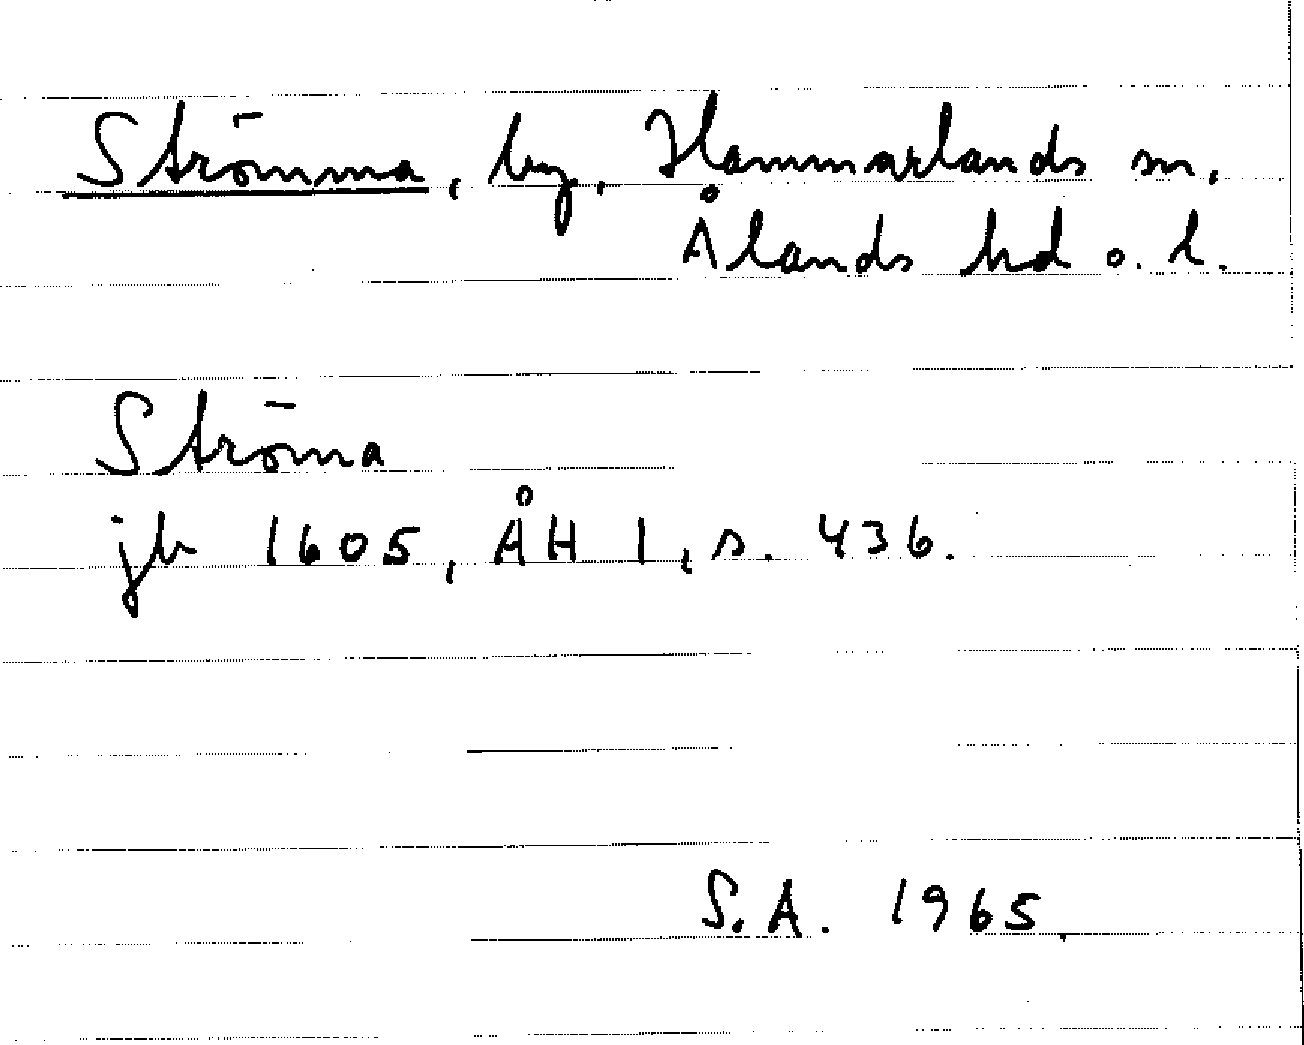 Strömma, by, Hammarlands sn,
Ålands hd o. l.
Ströma
jb 1605, ÅH I, s. 436.
S.A. 1965.